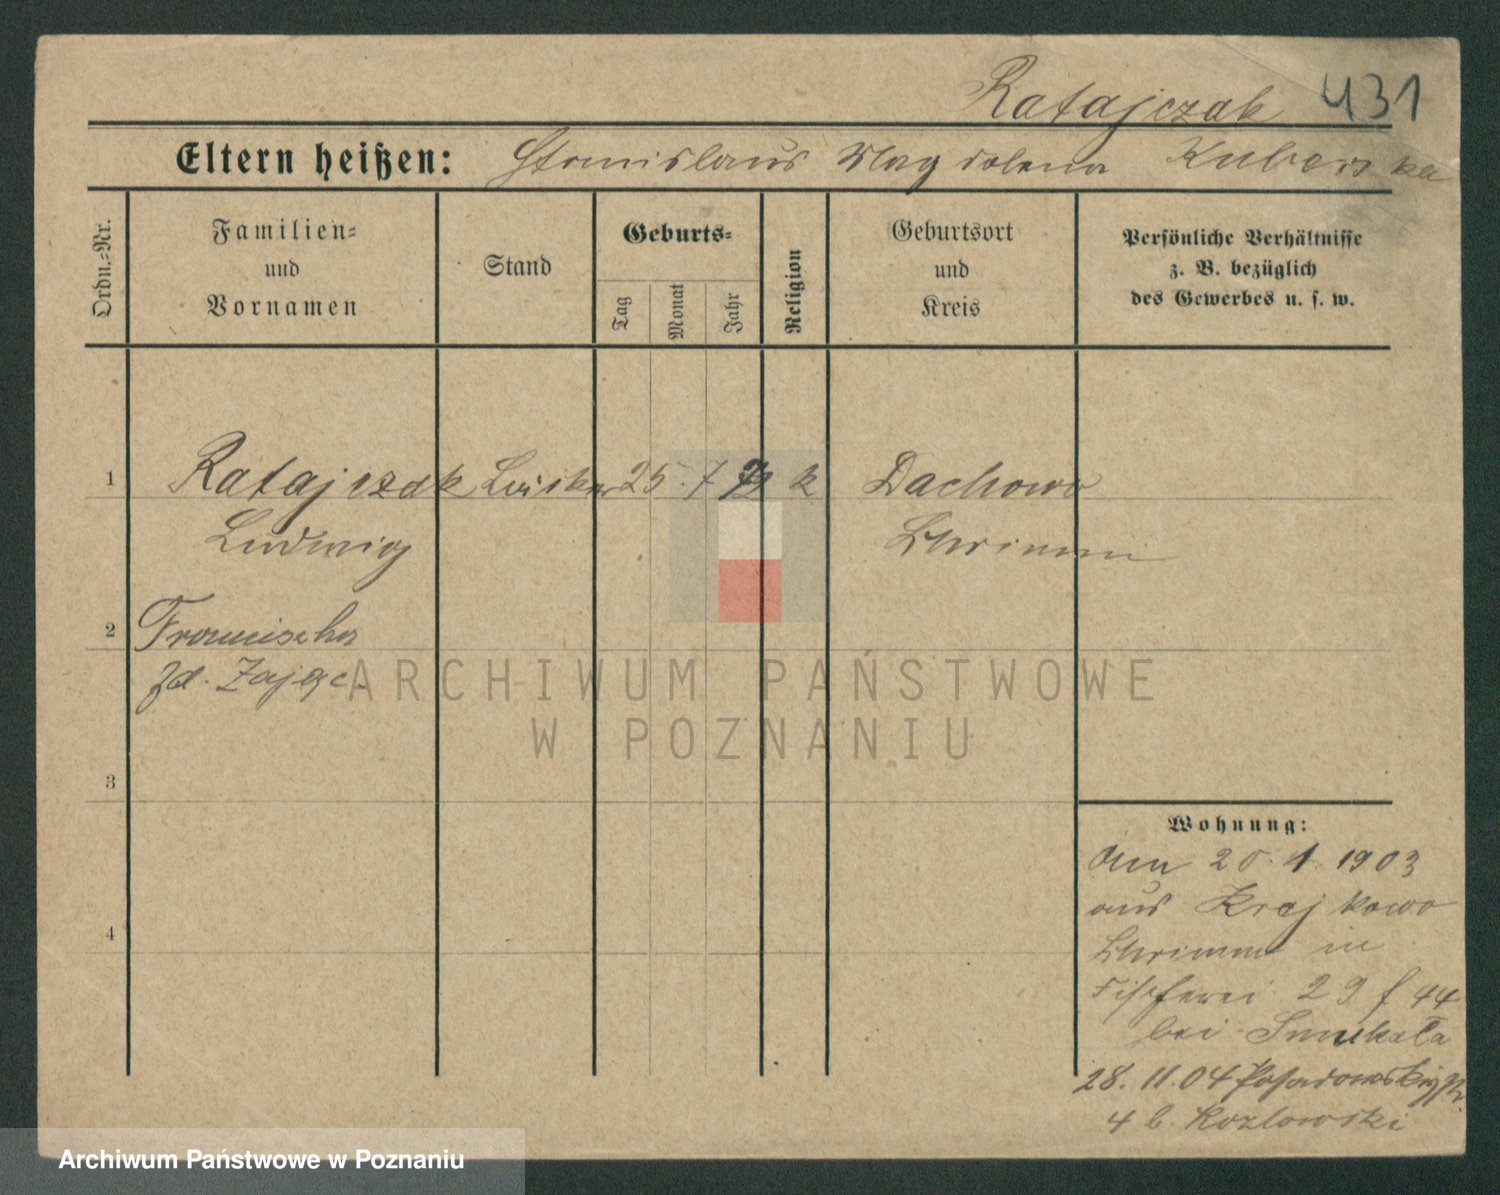 Ratajczak 431
Eltern heißen: Stanislaus Magdalena Kuberska
Ordn.-Nr.
Familien-
und
Vornamen
Stand
Geburts-
Tag
Monat
Jahr
Religion
Geburtsort
und
Kreis
Persönliche Verhältnisse
z. B. bezüglich
des Gewerbes u. s. w.
1 Ratajczak 25. 7 k Dachowo
Ludwig Schrimm
2 Franciszka
zd. Zając
3
4
Wohnung:
Am 20. 1. 1903
aus Krajkowo
Schrimm in
Fischerei 29 f 44
bei Smukała
28. 11. 04
4 b. Kozlowski
ARCHIWUM PAŃSTWOWE
W POZNANIU
Archiwum Państwowe w Poznaniu